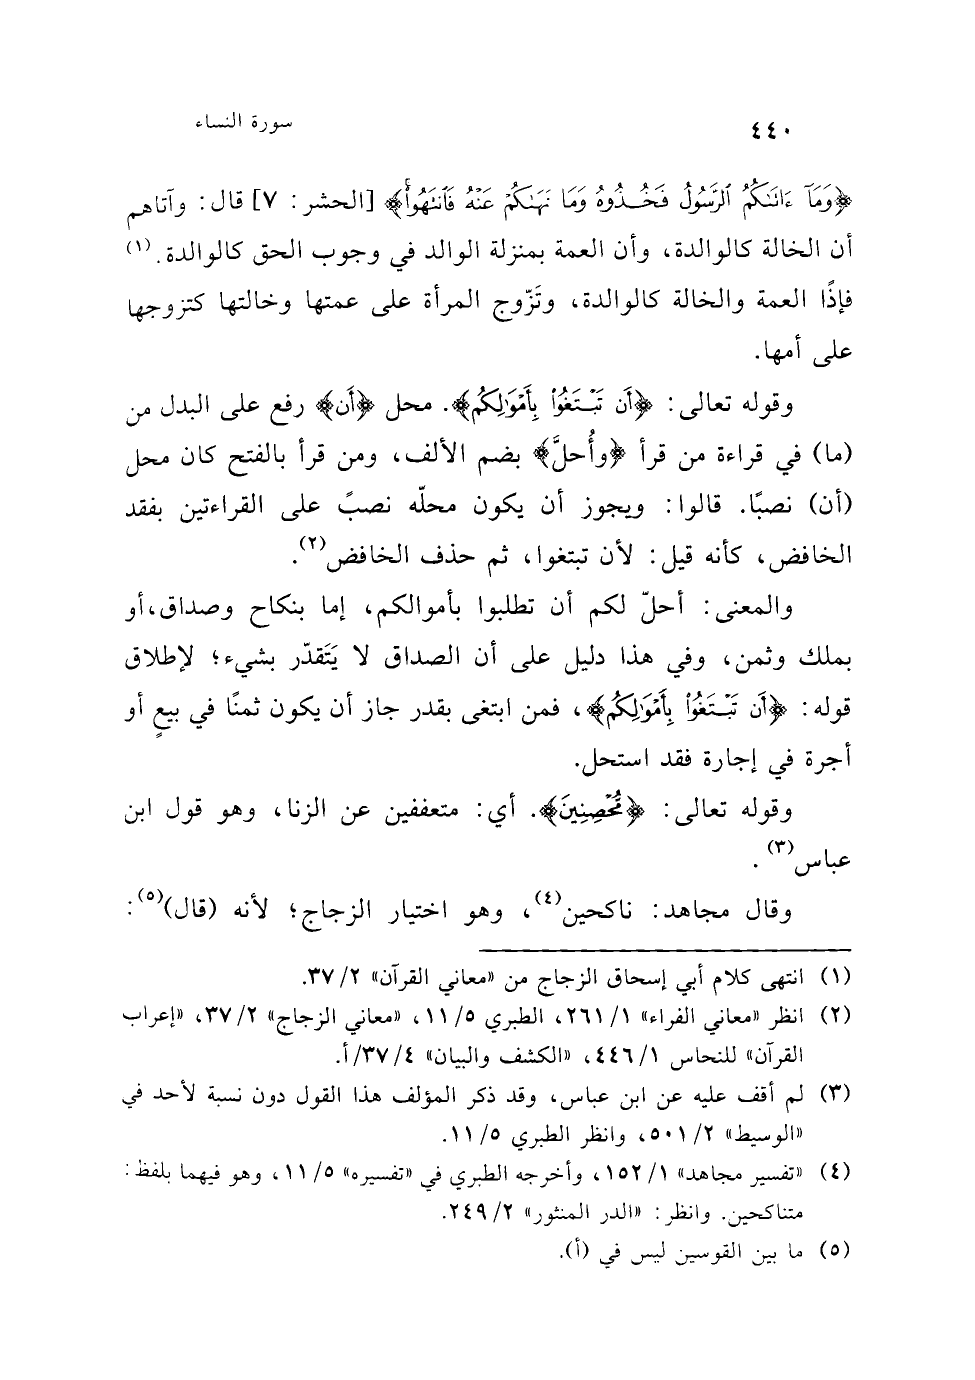 ٤٤٠
سورة النساء
﴿وَمَآ ءَاتَىٰكُمُ ٱلرَّسُولُ فَخُذُوهُ وَمَا نَهَىٰكُمْ عَنْهُ فَٱنتَهُوا۟﴾ [الحشر: ٧] قال: وآتاهم
أن الخالة كالوالدة، وأن العمة بمنزلة الوالد في وجوب الحق كالوالدة.(١)
فإذًا العمة والخالة كالوالدة، وتَزّوج المرأة على عمتها وخالتها كتزوجها
على أمها.
وقوله تعالى: ﴿أَن تَبْتَغُوا۟ بِأَمْوَٰلِكُم﴾. محل ﴿أَن﴾ رفع على البدل من
(ما) في قراءة من قرأ ﴿وأُحلَّ﴾ بضم الألف، ومن قرأ بالفتح كان محل
(أن) نصبًا. قالوا: ويجوز أن يكون محلّه نصبً على القراءتين بفقد
الخافض، كأنه قيل: لأن تبتغوا، ثم حذف الخافض(٢).
والمعنى: أحلّ لكم أن تطلبوا بأموالكم، إما بنكاح وصداق،أو
بملك وثمن، وفي هذا دليل على أن الصداق لا يَتَقدّر بشيء؛ لإطلاق
قوله: ﴿أَن تَبْتَغُوا۟ بِأَمْوَٰلِكُم﴾، فمن ابتغى بقدر جاز أن يكون ثمنًا في بيعٍ أو
أجرة في إجارة فقد استحل.
وقوله تعالى: ﴿مُّحْصِنِينَ﴾. أي: متعففين عن الزنا، وهو قول ابن
عباس(٣).
وقال مجاهد: ناكحين(٤)، وهو اختيار الزجاج؛ لأنه (قال)(٥):
(١) انتهى كلام أبي إسحاق الزجاج من «معاني القرآن» ٢/ ٣٧.
(٢) انظر «معاني الفراء» ١/ ٢٦١، الطبري ٥/ ١١، «معاني الزجاج» ٢/ ٣٧، «إعراب
القرآن» للنحاس ١/ ٤٤٦، «الكشف والبيان» ٤/ ٣٧/أ.
(٣) لم أقف عليه عن ابن عباس، وقد ذكر المؤلف هذا القول دون نسبة لأحد في
«الوسيط» ٢/ ٥٠١، وانظر الطبري ٥/ ١١.
(٤) «تفسير مجاهد» ١/ ١٥٢، وأخرجه الطبري في «تفسيره» ٥/ ١١، وهو فيهما بلفظ:
متناكحين. وانظر: «الدر المنثور» ٢/ ٢٤٩.
(٥) ما بين القوسين ليس في (أ).